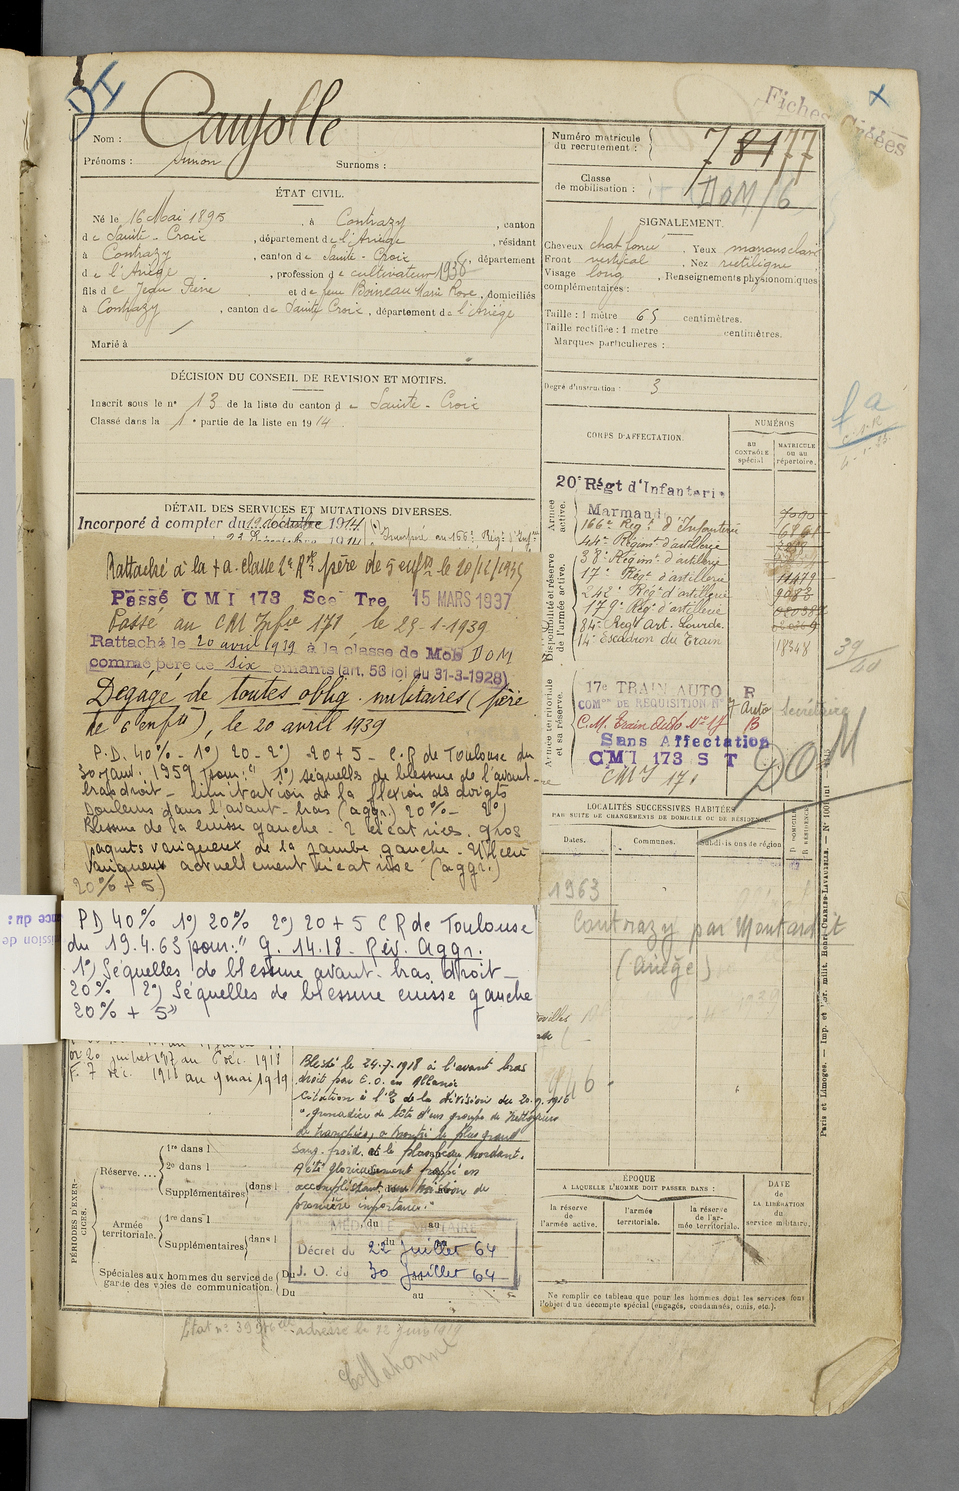 DI
Fiches Créées
X
Nom : Caujolle
Prénoms : Simon Surnoms :
Numéro matricule du recrutement : 78177
Classe de mobilisation : DOM/6
ÉTAT CIVIL.
Né le 16 Mai 1895, à Contrazy, canton
de Sainte-Croix, département de l'Ariège, résidant
à Contrazy, canton de Sainte-Croix, département
de l'Ariège, profession de cultivateur 1936
fils de Jean Pierre et de feue Boineau Marie Rose, domiciliés
à Contrazy, canton de Sainte Croix, département de l'Ariège
Marié à
SIGNALEMENT.
Cheveux chat foncé. Yeux marrons clairs
Front vertical, Nez rectiligne
Visage long, Renseignements physionomiques
complémentaires :
Taille : 1 mètre 65 centimètres.
Taille rectifiée : 1 mètre centimètres.
Marques particulières :
Degré d'instruction : 3
DÉCISION DU CONSEIL DE REVISION ET MOTIFS.
Inscrit sous le n° 13 de la liste du canton de Sainte-Croix
Classé dans la 1e partie de la liste en 1914
CORPS D'AFFECTATION.
NUMÉROS
au CONTRÔLE spécial
MATRICULE ou au répertoire.
Armée active.
20e Régt d'Infanterie
Marmande
166e Régt d'Infanterie 6861
44e Régiment d'artillerie
Disponibilité et réserve de l'armée active.
38e Régimt d'artillerie
17e Régt d'artillerie 11479
242e Régt d'artillerie 9083
179e Régt d'artillerie
84e Régt Art. Lourde
14e Escadron du Train 18348
39/40
Armée territoriale et sa réserve.
17e TRAIN AUTO R
COMon DE REQUISITION N° 7 Auto Secrétaire
C.M. Train Auto N° 17 B
Sans Affectation
CMI 173 S T
CMI 171
DOM
DÉTAIL DES SERVICES ET MUTATIONS DIVERSES.
Incorporé à compter du 12 décembre 1914
Rattaché à la + a. classe 2e Rve père de 5 enfts le 20/12/1935
Passé CMI 173 Sce Tre 15 MARS 1937
Passé au CM Infie 171, le 25-1-1939
Rattaché le 20 avril 1939 à la classe de Mob DOM
comme père de six enfants (art. 58 loi du 31-3-1928)
Dégagé de toutes oblig. militaires (père
de 6 enfts), le 20 avril 1939
P.D. 40% - 1°) 20 - 2°) 20+5 C.R de Toulouse du
30 janv. 1959 pour : " 1°) séquelles de blessure de l'avant-
bras droit - limitation de la flexion des doigts
Douleurs dans l'avant-bras (aggr.) 20% - 2°)
Blessure de la cuisse gauche. 2 cicatrices. gros
paquets variqueux de la jambe gauche - Ulcère
variqueux actuellement cicatrisé (aggr.)
20% + 5)
PD 40% 1°) 20% 2°) 20+5 CR de Toulouse
du 19.4.63 pour : " G. 14.18 - Rév. Aggr.
1°) Séquelles de blessure avant-bras droit -
20% 2°) Séquelles de blessure cuisse gauche
20% + 5"
or 20 juillet 1917 au 6 déc. 1918
F. 7 déc. 1918 au 9 mai 1919
Blessé le 24-7-1918 à l'avant bras
droit par E.O.
Citation à l'O de la Division du 20.9.1916
" grenadier de tête d'un groupe de nettoyeurs
de tranchées, a montré le plus grand
sang-froid et le plus beau mordant.
A été glorieusement frappé en
accomplissant une mission de
première importance."
MÉDAILLE MILITAIRE
Décret du 22 Juillet 64
J. O. du 30 Juillet 64
LOCALITÉS SUCCESSIVES HABITÉES
PAR SUITE DE CHANGEMENTS DE DOMICILE OU DE RÉSIDENCE.
Dates. Communes. Subdivisions de région. D DOMICILE R RÉSIDENCE
1963
Contrazy par Montardit
(Ariège)
946
PÉRIODES D'EXERCICES.
Réserve....
1re dans l
2e dans l
Supplémentaires dans l
Armée territoriale.
1re dans l
Supplémentaires dans l
Spéciales aux hommes du service de garde des voies de communication.
du au
Du au
ÉPOQUE
A LAQUELLE L'HOMME DOIT PASSER DANS :
la réserve de l'armée active.
l'armée territoriale.
la réserve de l'armée territoriale.
DATE de LA LIBÉRATION du service militaire.
Ne remplir ce tableau que pour les hommes dont les services font
l'objet d'un décompte spécial (engagés, condamnés, omis, etc.).
Paris et Limoges. — Imp. et libr. milit. Henri CHARLES-LAVAUZELLE.
Collationné